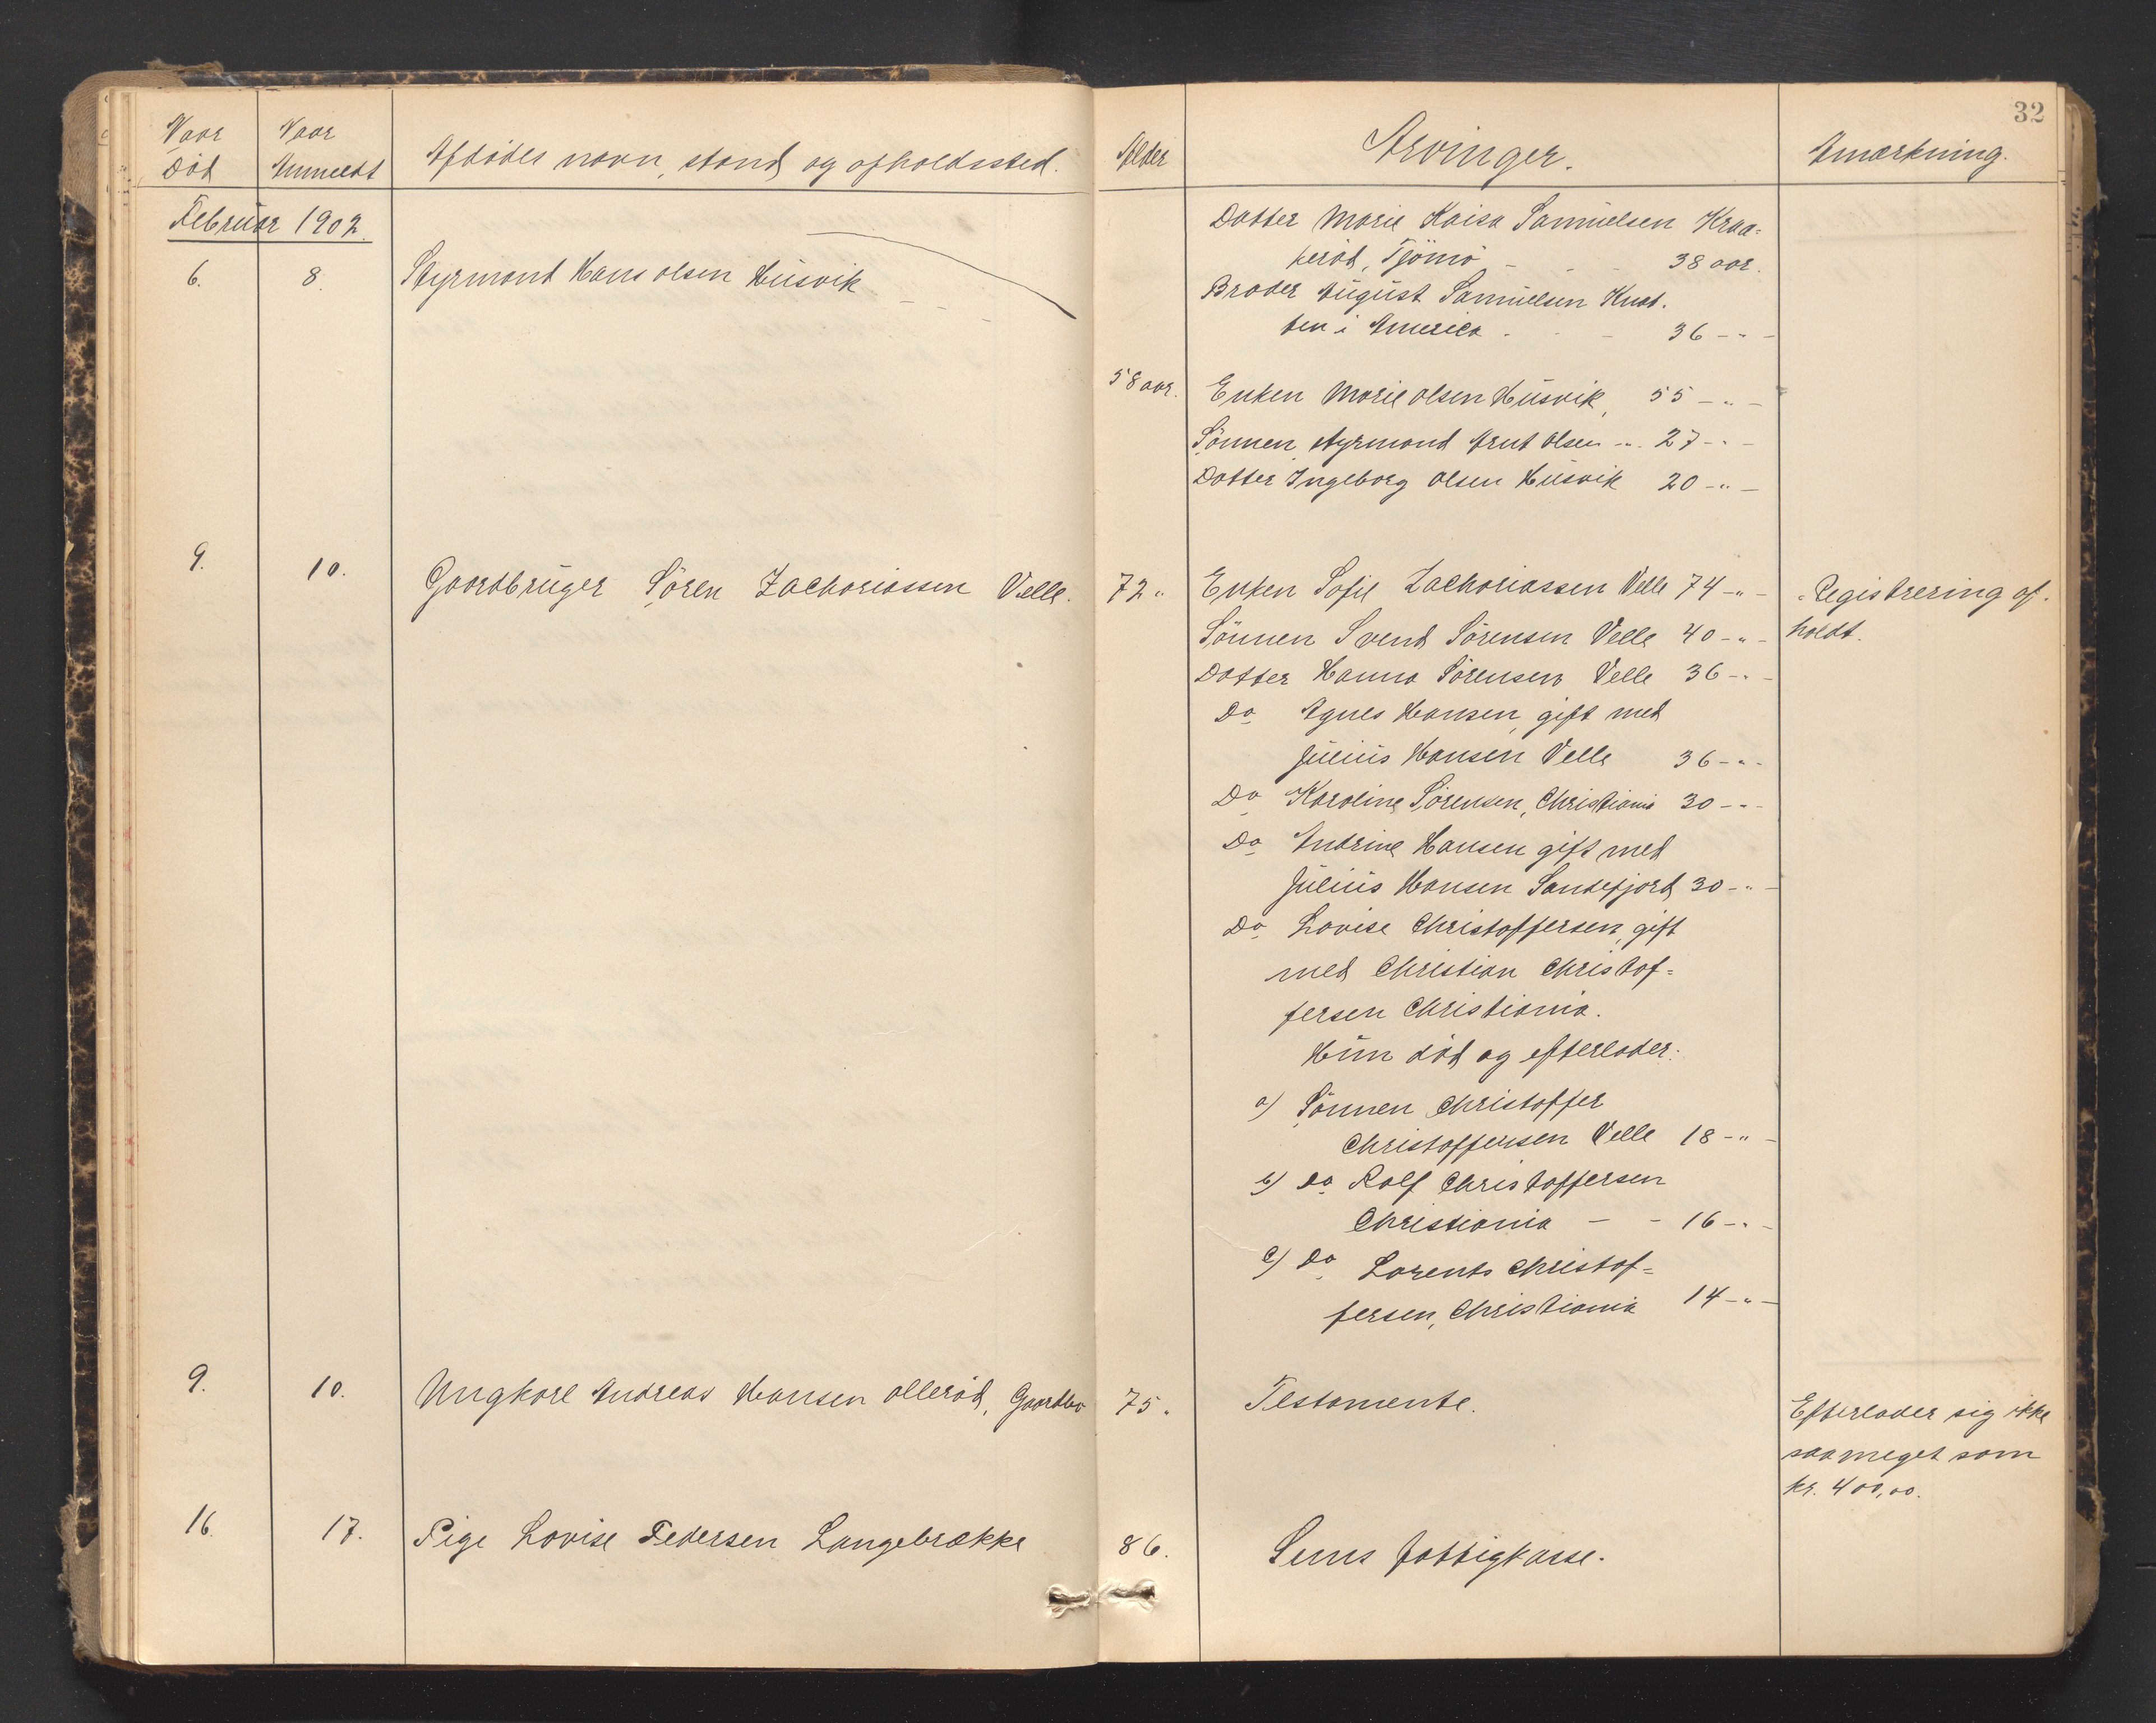 32
Naar Død
Naar Anmeldt
Afdødes navn, stand og opholdssted.
Alder
Arvinger.
Anmærkning.
Februar 1902.
Datter Marie Kaisa Samuelsen Kraa=
kerød, Tjømø - - - 38 aar.
Broder August Samuelsen Knat.
ten i America . - - 36 - " -
6. 8. Styrmand Hans Olsen Husvik - - -
58 aar. Enken Marie Olsen Husvik, 55 - " -
Sønnen styrmand Arnt Olsen - " - 27 - " -
Datter Ingeborg Olsen Husvik 20 - " -
9. 10. Gaardbruger Søren Zachariassen Velle. 72 " Enken Sofie Zachariassen Velle 74 - " - Registrering af-
Sønnen Svend Sørensen Velle 40 - " - holdt.
Datter Hanna Sørensen Velle 36 - " -
Do Agnes Hansen, gift med
Julius Hansen Velle 36 - " -
Do Karoline Sørensen, Christiania 30 - " -
Do Andrine Hansen gift med
Julius Hansen Sandefjord 30 - " -
Do Lovise Christoffersen, gift
med Christian Christof=
fersen Christiania.
Hun død og efterlader:
a) Sønnen Christoffer
Christoffersen Velle 18 - " -
b) Do Rolf Christoffersen
Christiania - - 16 - " -
c) Do Lorents Christof=
fersen, Christiania 14 - " -
9. 10. Ungkarl Andreas Hansen Ollerød, Gaardbr 75 " Testamente.
Efterlader sig ikke
saa meget som
kr. 400,00.
16. 17. Pige Lovise Pedersen Langebrække 86. Sems fattigkasse.